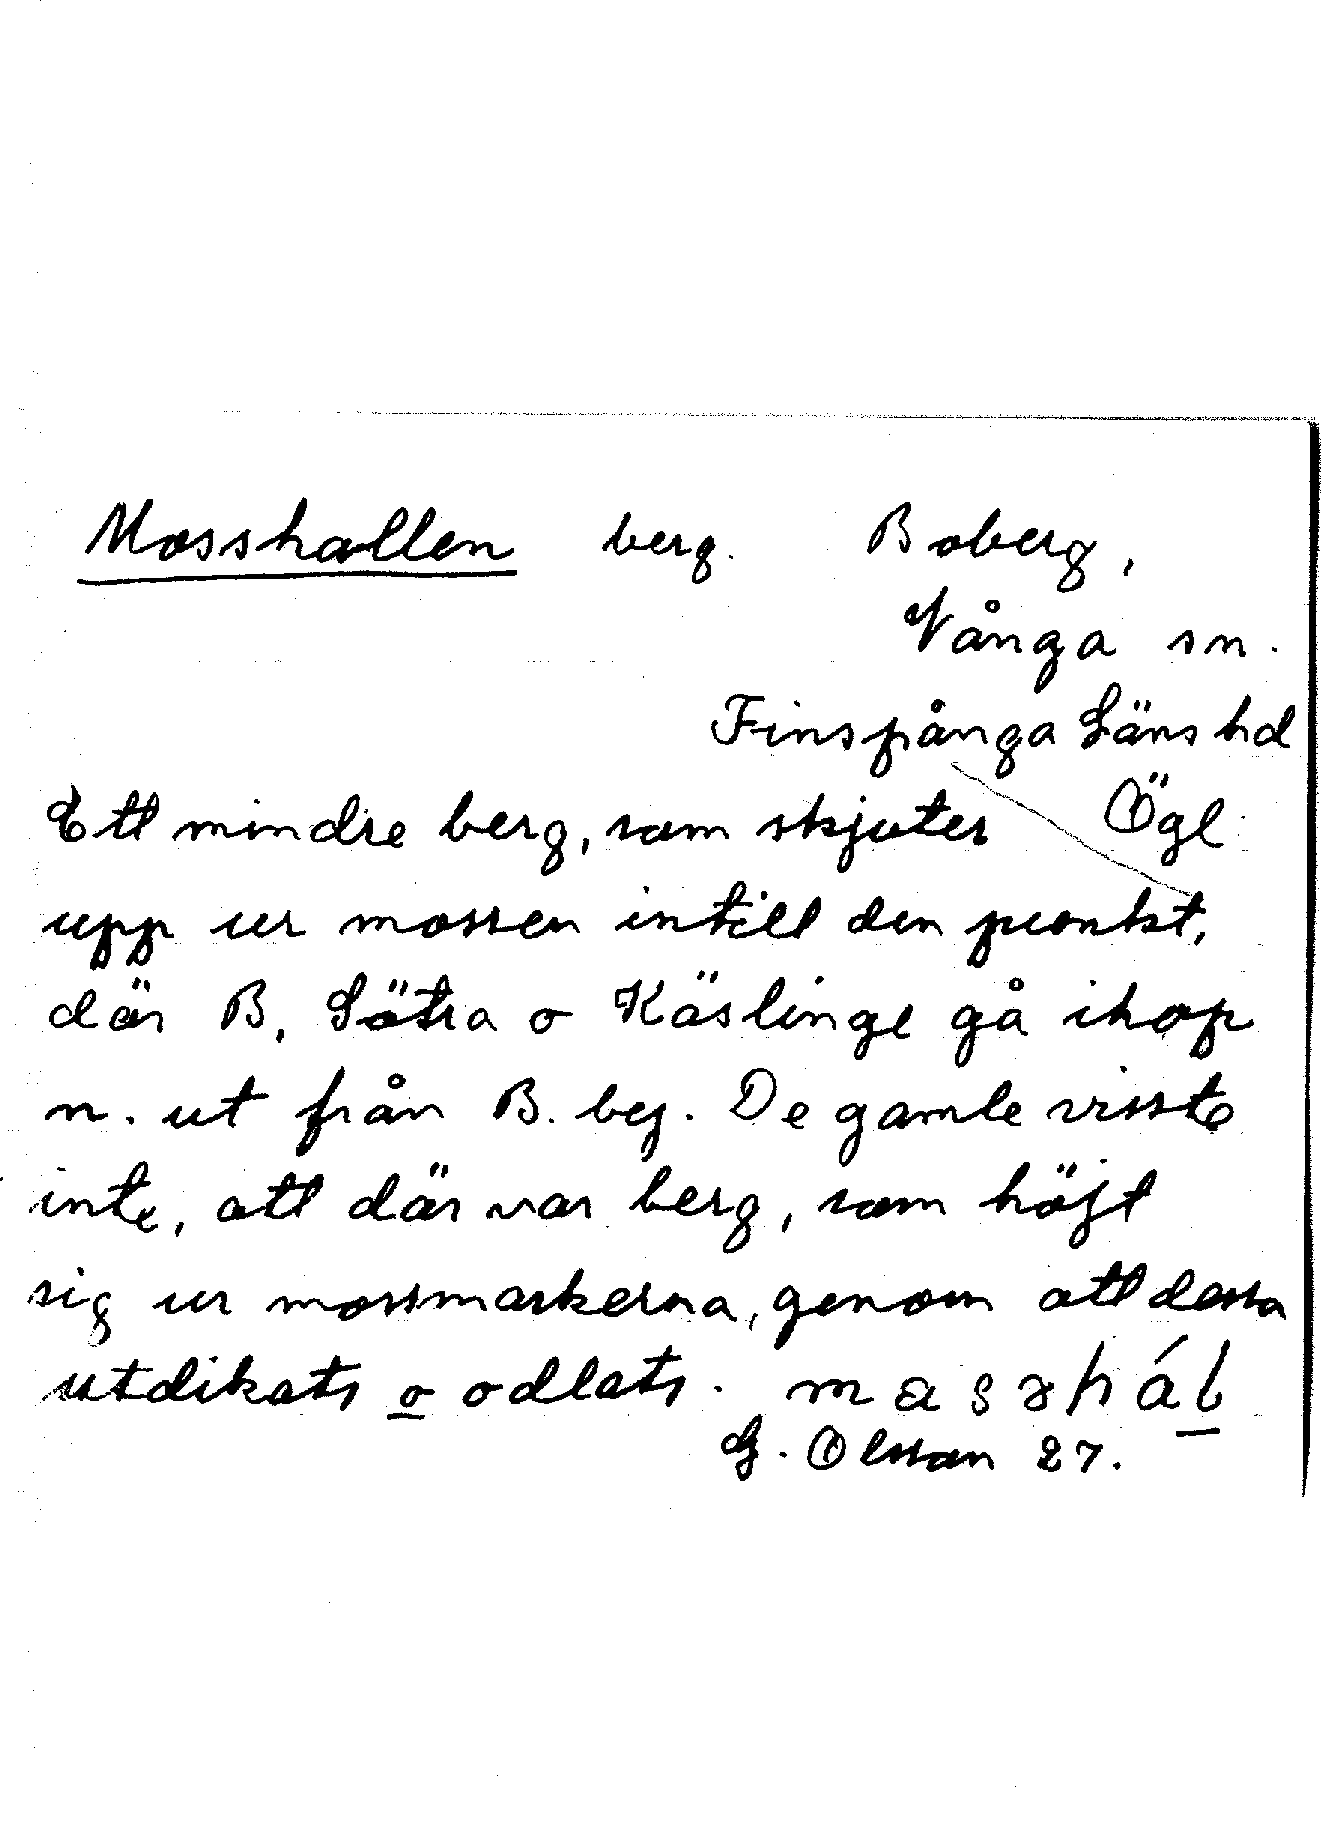 Mosshallen berg. Boberg,
Vånga sn.
Finspånga Läns hd
Ögl
Ett mindre berg, som skjuter
upp ur mossen intill den punkt,
där B, Sätra o Käslinge gå ihop
n. ut från B. beg. De gamle visste
inte, att där var berg, som höjt
sig ur mossmarkerna, genom att dessa
utdikats o odlats.
G. Olsson 27.